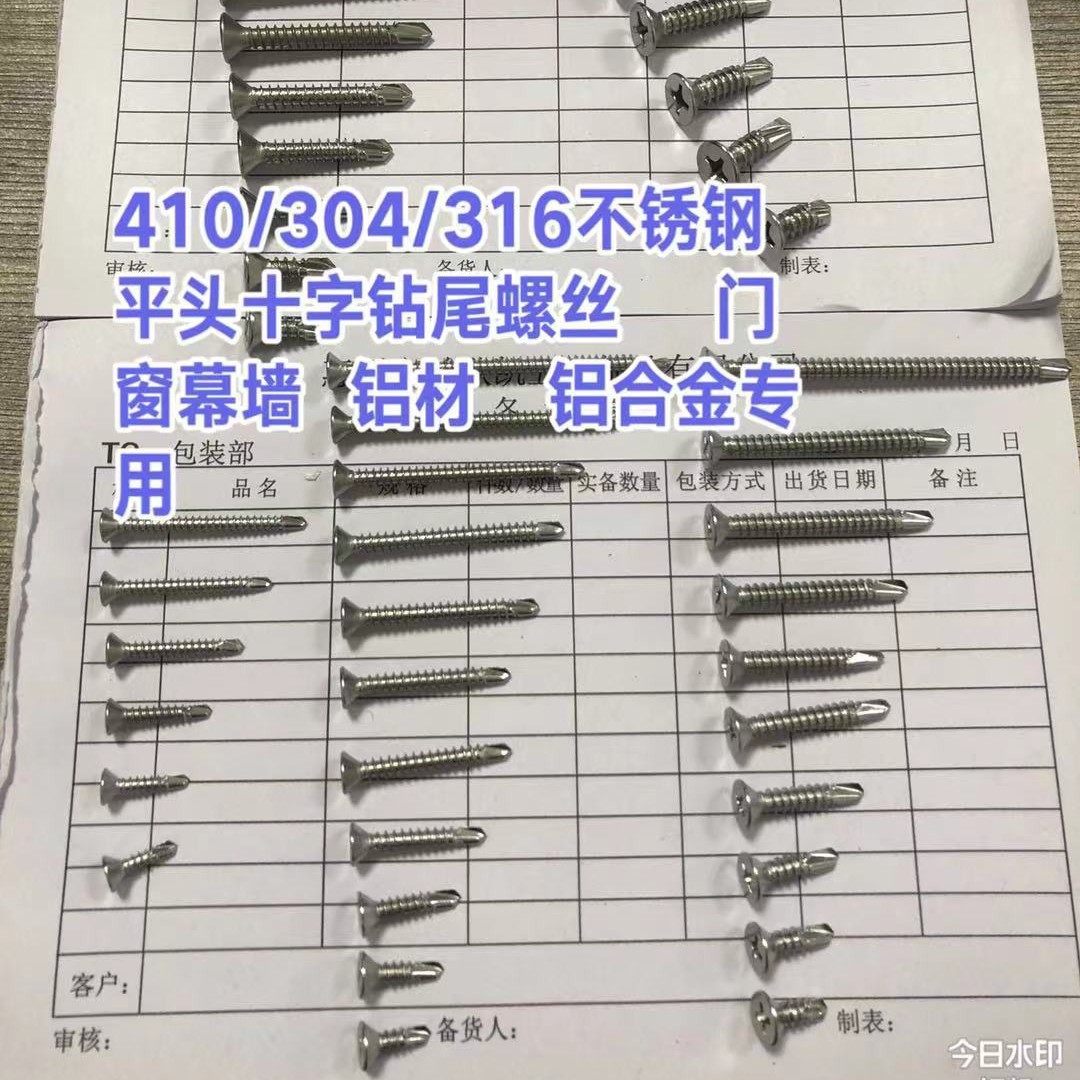 410/304/316不锈钢
平头十字钻尾螺丝 门
窗幕墙 铝材 铝合金专
用
审核: 备货人: 制表:
包装部 月 日
品名 规格 计数/数量 实备数量 包装方式 出货日期 备注
客户:
审核: 备货人: 制表:
今日水印